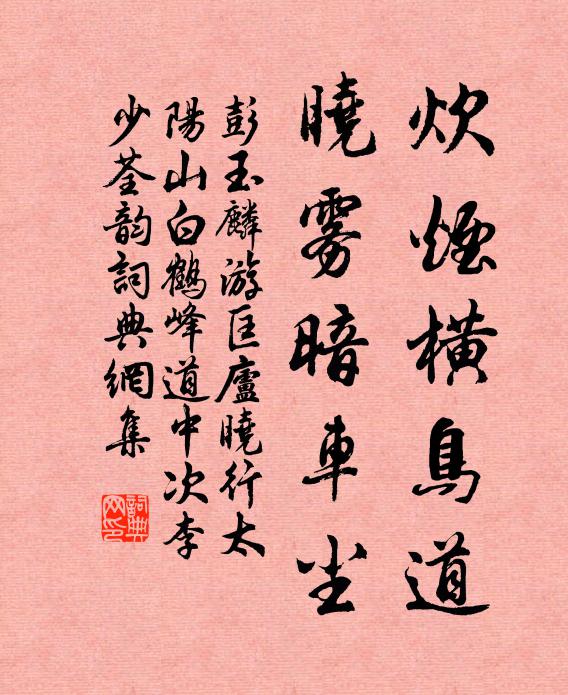 炊煙橫鳥道
曉雾暗車尘
彭玉麟游匡廬曉行太
陽山白鶴峰道中次李
少荃韵詞典網集
詞典
网印